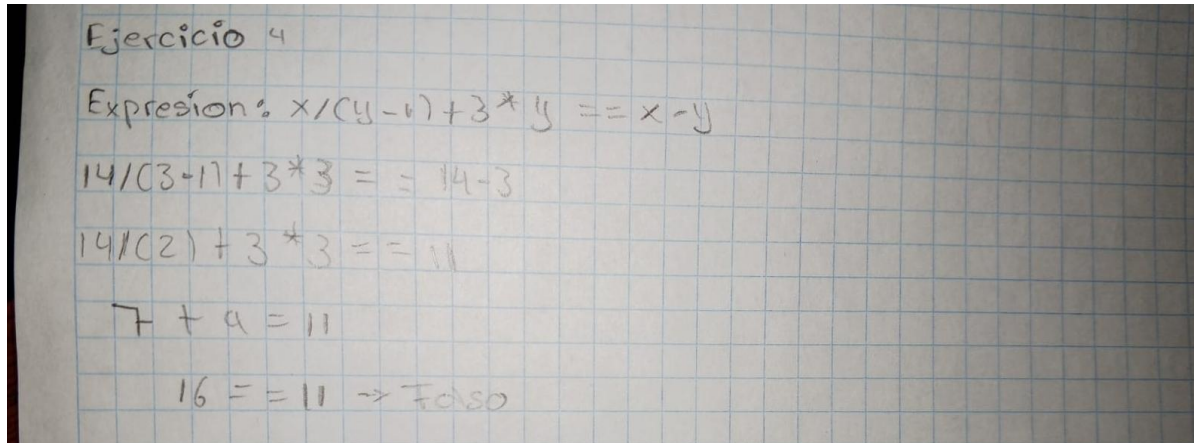 Ejercicio 4
Expresion: x/(y-1)+3*y == x-y
14/(3-1)+3*3 == 14-3
14/(2)+3*3 == 11
7 + 9 = 11
16 == 11 -> Falso